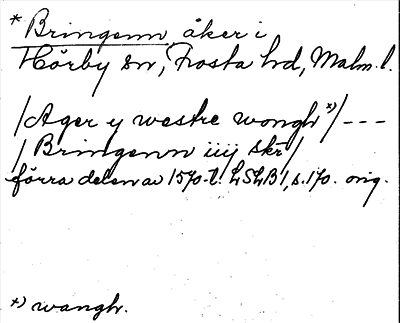 * Bringenn åker i
Hörby sn, Frosta hd, Malm. l.
/Ager y westre wongh *)/ - - -
/ Bringenn iiij skr /
förra delen av 1570-t. LSLB 1, s. 170. orig.
*) wangh.